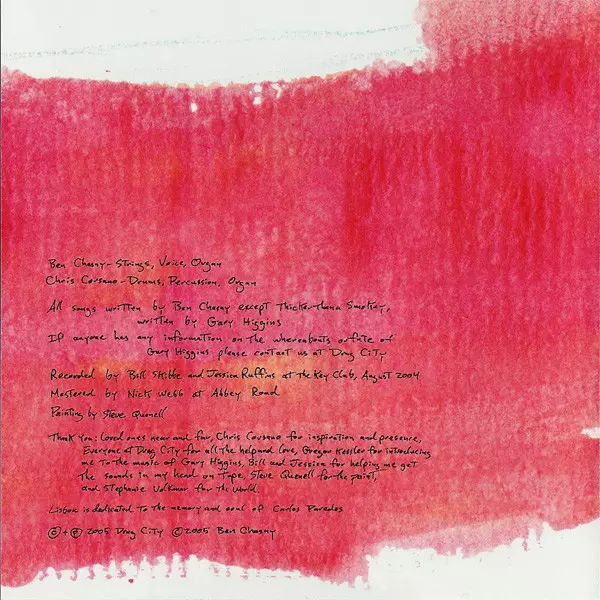 Ben Chasny - Strings, Voice, Organ
Chris Corsano - Drums, Percussion, Organ
All songs written by Ben Chasny except Thicker than a Smokey,
written by Gary Higgins
If anyone has any information on the whereabouts or fate of
Gary Higgins please contact us at Drag City
Recorded by Bill Skibbe and Jessica Ruffins at the Key Club, August 2004
Mastered by Nick Webb at Abbey Road
Painting by Steve Quenell
Thank You: Loved ones near and far, Chris Corsano for inspiration and presence,
Everyone at Drag City for all the help and love, Gregor Kessler for introducing
me to the music of Gary Higgins, Bill and Jessica for helping me get
the sounds in my head on tape, Steve Quenell for the paint,
and Stephanie Volkmar for the World.
Lisboa is dedicated to the memory and soul of Carlos Paredes
© + ℗ 2005 Drag City © 2005 Ben Chasny